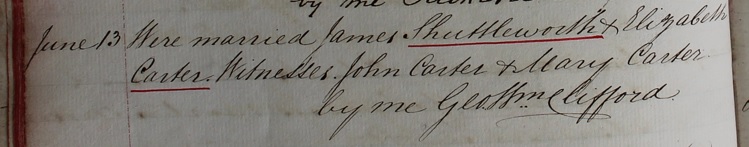 by me
June 13 Were married James Shuttleworth & Elizabeth
Carter. Witnesses. John Carter & Mary Carter
by me Geo. Hm. Clifford.